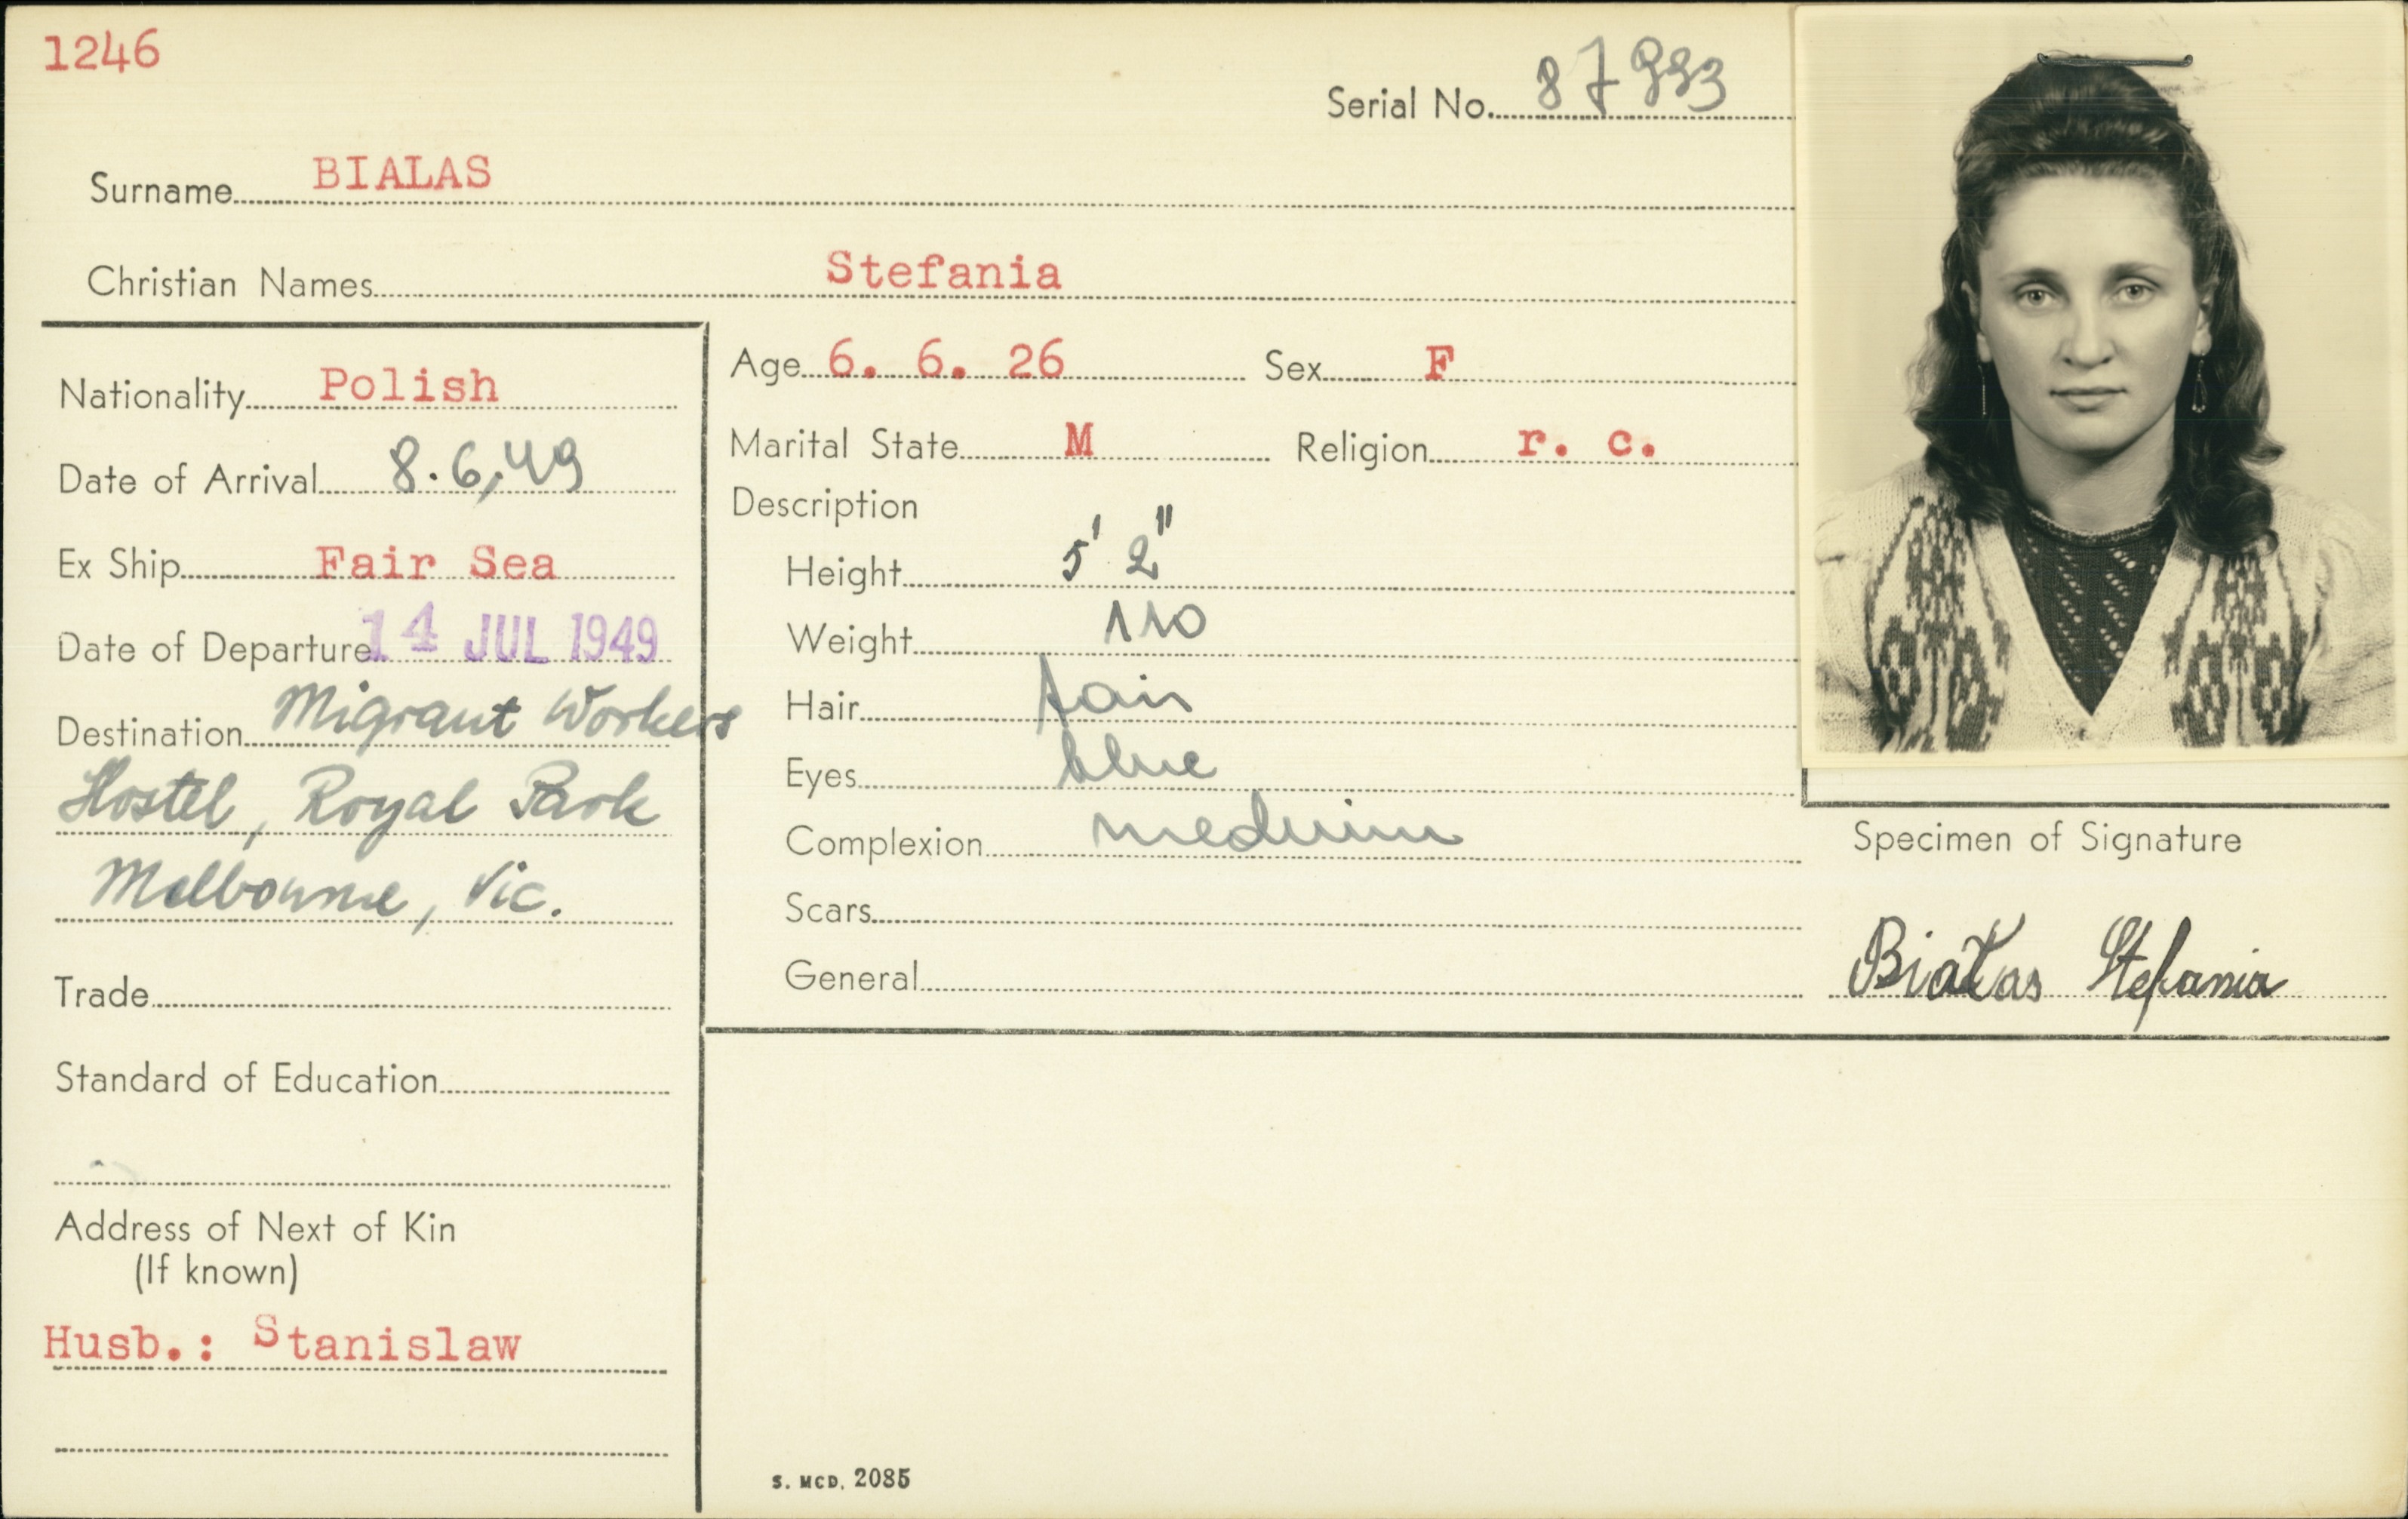 1246
Serial No. 87993
Surname BIALAS
Christian Names Stefania
Nationality Polish
Date of Arrival 8.6.49
Ex Ship Fair Sea
Date of Departure 14 JUL 1949
Destination Migrant Workers
Hostel, Royal Park
Melbourne, Vic.
Trade
Standard of Education
Address of Next of Kin
(If known)
Husb.: Stanislaw
Age 6. 6. 26 Sex F
Marital State M Religion r. c.
Description
Height 5' 2"
Weight 110
Hair fair
Eyes blue
Complexion medium
Scars
General
Specimen of Signature
Białas Stefania
S. MCD. 2085